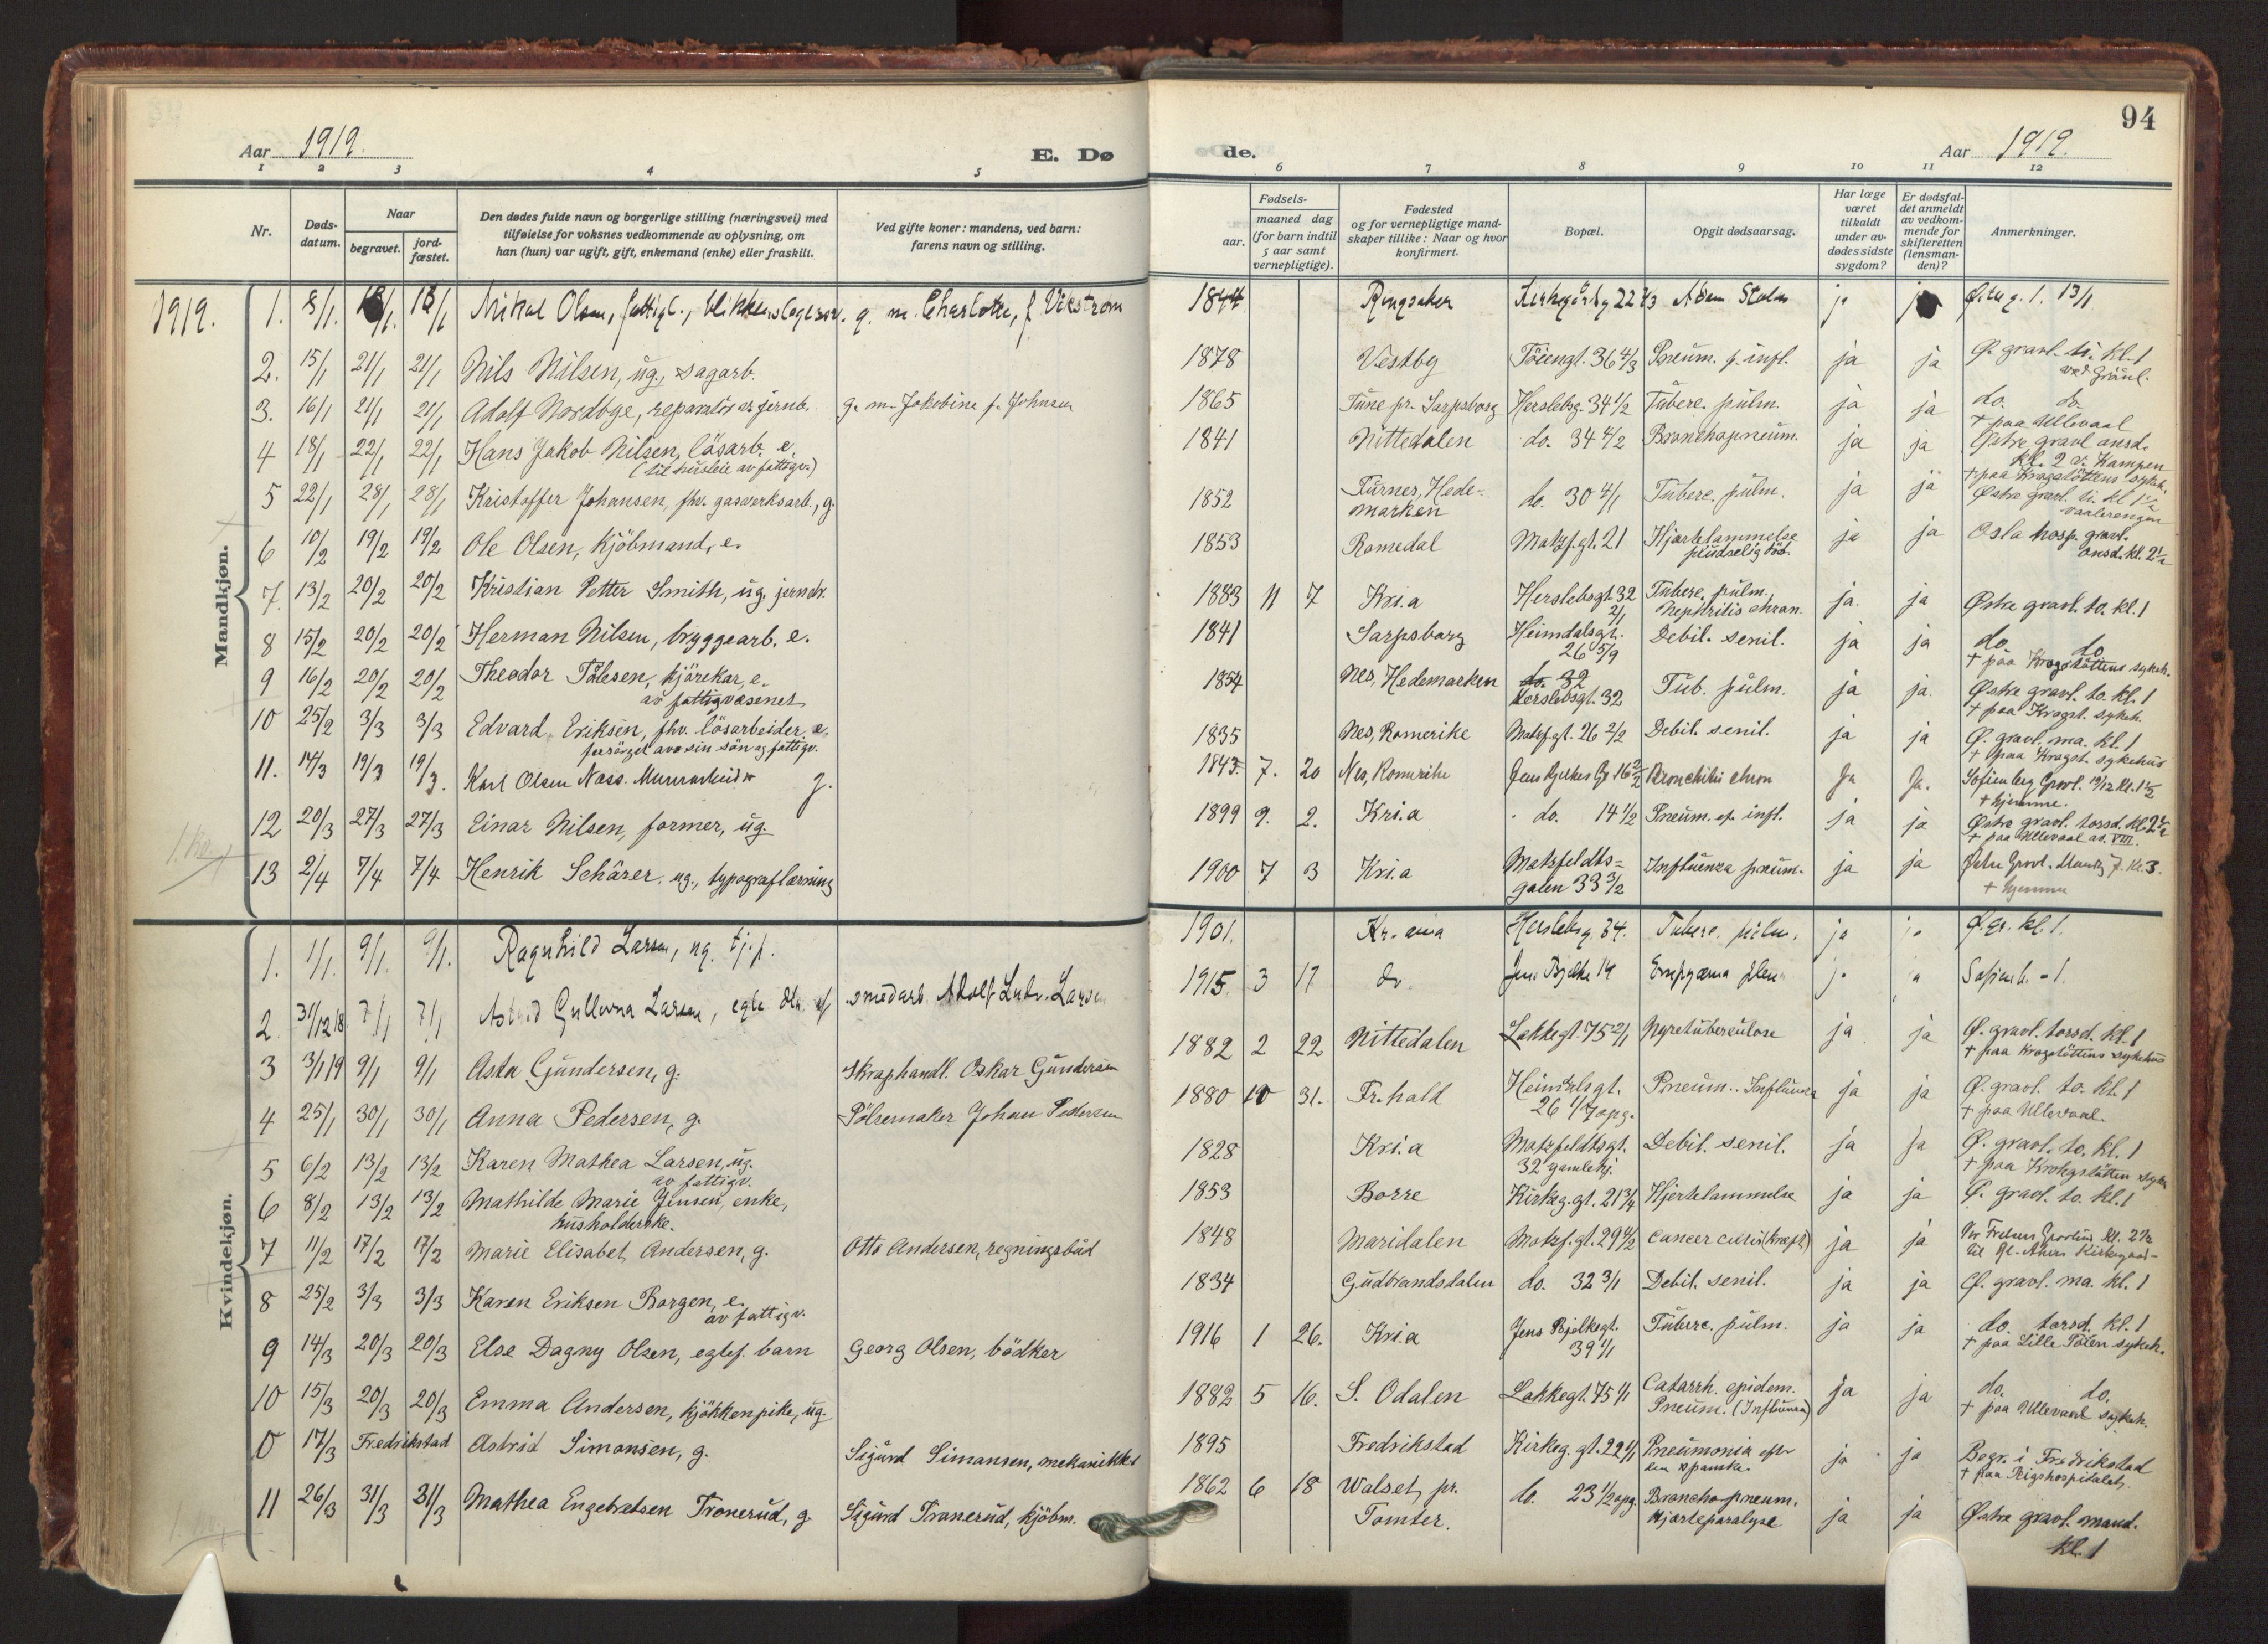 94
Aar 1919.
E. Dø
de.
Aar 1919.
1 2 3 4 5
6 7 8 9 10 11 12
Nr.
Døds-
datum.
Naar
begravet.
jord-
fæstet.
Den dødes fulde navn og borgerlige stilling (næringsvei) med
tilføielse for voksnes vedkommende av oplysning, om
han (hun) var ugift, gift, enkemand (enke) eller fraskilt.
Ved gifte koner: mandens, ved barn:
farens navn og stilling.
Fødsels-
aar.
maaned dag
(for barn indtil
5 aar samt
vernepligtige).
Fødested
og for vernepligtige mand-
skaper tillike: Naar og hvor
konfirmert.
Bopæl.
Opgit dødsaarsag.
Har læge
været
tilkaldt
under av-
dødes sidste
sygdom?
Er dødsfal-
det anmeldt
av vedkom-
mende for
skifteretten
(lensman-
den)?
Anmerkninger.
1919.
Mandkjøn.
1. 8/1. Olsen, g. m. Charlotte, f. Vikstrøm 1844 Ringsaker 13/1
2. 15/1 21/1 21/1 Nils Nilsen, ug., sagarb. 1878 Vestby Töiengt. 36 4/3 Pneum. p. infl. ja ja Ø. gravl. ti. kl. 1
ved Grönl.
3. 16/1 21/1 21/1 Adolf Nordbye, reparatör v. jernb. g. m. Jakobine f. Johnsen 1865 Tune pr. Sarpsborg Herslebsg. 34 1/2 Tuberc. pulm. ja ja do. do.
+ paa Ullevaal
4 18/1 22/1 22/1 Hans Jakob Nilsen, lösarb. e. 1841 Nittedalen do. 34 4/2 Bronchopneum. ja ja Østre gravl. onsd.
(til husleie av fattigv.) kl. 2 v. Kampen
+ paa Krogstöttens sykeh.
5 22/1 28/1 28/1 Kristoffer Johansen, fhv. gasverksarb., g. 1852 Furnes, Hede-
marken do. 30 4/1 Tuberc. pulm. ja ja Østre gravl. ti. kl. 1 1/2
vaalerengen
6 10/2 19/2 19/2 Ole Olsen, kjöbmand, e. 1853 Romedal Motzf.gt. 21 Hjertelammelse ja ja Oslo hosp. gravl.
pludselig död. onsd. kl. 2 1/2
7. 13/2 20/2 20/2 Kristian Petter Smith, ug. jerndr. 1883 11 7 Kri.a Herslebsgt. 32 2/1 Tuberc. pulm., Nephritis chron. ja. ja Østre gravl. to. kl. 1
8 15/2 20/2 20/2 Herman Nilsen, bryggearb. e. 1841 Sarpsborg Heimdalsgt. 26 5/9 Debil. senil. ja ja do. do.
+ paa Krogstöttens sykeh.
9 16/2 20/2 20/2 Theodor kjörekar, e. 1854 Nes, Hedemarken do. 32 Tub. pulm. ja ja. Østre gravl. to. kl. 1
av fattigvæsenet Herslebsgt. 32 + paa Krogst. sykeh.
10 25/2 3/3 3/3 Edvard Eriksen, fhv. lösarbeider, e. 1835 Nes, Romerike Motzf.gt. 26 2/2 Debil. senil. ja ja Ø. gravl. ma. kl. 1
forsörget av sin sön og fattigv. + paa Krogst. sykehus
11. 14/3 19/3 19/3. Karl Olsen Næss. Murarbeider g. 1843. 7. 20 Nes, Romerike Jens Bjelkes Gt 16 2/2 Bronchitis chron Ja Ja.
+ hjemme.
12 20/3 27/3 27/3 Einar Nilsen, former, ug. 1899 9. 2. Kri.a do. 14 1/2 Pneum. ef. infl. ja ja Østre gravl. torsd. kl. 2 1/2
+ paa Ullevaal av. VIII.
13 2/4 7/4 7/4 Henrik Schärer. ug., typograflærning 1900 7 3 Kri.a Motzfeldts-
gaten 33 3/2 Influenza pneum. ja ja Kl. 3.
+ hjemme
Kvindekjøn.
1. 1/1. 9/1. 9/1. Ragnhild Larsen, ug. tj.p. 1901. Kr.ania Herslebsg. 34. Tuberc. pulm. ja Ø. gr. kl. 1.
2. 31/12 18 7/1 7/1 Larsen, smedarb. Adolf Ludv. Larsen 1915 3 17 do Jens Bjelke 14 Empyema Sofienb. - 1.
3 3/1 19 9/1 9/1 Asta Gundersen, g. Skraphandl. Oskar Gundersen 1882 2 22 Nittedalen Lakkegt. 75 2/1 Nyretuberculose ja ja Ø. gravl. torsd. kl. 1
+ paa Krogstöttens sykehus
4 25/1 30/1 30/1 Anna Pedersen, g. Pölsemaker Johan Pedersen 1880 10 31. Fr.hald Heimdalsgt. 26 1/7 opg. Pneum. Influenza ja ja Ø. gravl. to. kl. 1
+ paa Ullevaal.
5 6/2 13/2 13/2 Karen Mathea Larsen, ug. 1828 Kri.a Motzfeldtsgt. 32 gamlehj. Debil. senil. ja ja Ø. gravl. to. kl. 1
av fattigv.
6 8/2 13/2 13/2 Mathilde Marie Jensen, enke, 1853 Borre Kirkeg.gt. 21 3/4 Hjertelammelse ja ja Ø. gravl. to. kl. 1
husholderske.
7 11/2 17/2 17/2 Marie Elisabet Andersen, g. Otto Andersen, regningsbud 1848 Maridalen Motzf.gt. 29 4/2 Cancer ja ja kl. 2 1/2
8 25/2 3/3 3/3 Karen Eriksen Borgen, e. 1834 Gudbrandsdalen do. 32 3/1 Debil. senil. ja ja Ø. gravl. ma. kl. 1
av fattigv.
9 14/3 20/3 20/3 Else Dagny Olsen, egtef. barn Georg Olsen, bödker 1916 1 26. Kri.a Jens Bjelkegt. 39 1/1 Tuberc. pulm. ja ja do. torsd. kl. 1
+ paa Lille Töien sykeh.
10 15/3 20/3 20/3 Emma Andersen, kjökkenpike, ug. 1882 5 16. S. Odalen Lakkegt. 75 1/1 Catarrh. epidem. Pneum. (Influenza) ja ja do. do.
+ paa Ullevaal sykeh.
0 17/3 Fredrikstad Astrid Simonsen, g. Sigurd Simonsen, mekaniker 1895 Fredrikstad Kirkeg.gt. 22 4/1 Pneumonia efter den spanske. ja ja Begr. i Fredrikstad
+ paa Rigshospitalet.
11 26/3 31/3 31/3 Mathea Engebretsen Tronerud, g. Sigurd Tronerud, kjöbm. 1862 6 18 Walset, pr. Tomter. do. 23 1/2 opg. Bronchopneum. Hjerteparalyse ja ja Østre gravl. mand.
kl. 1